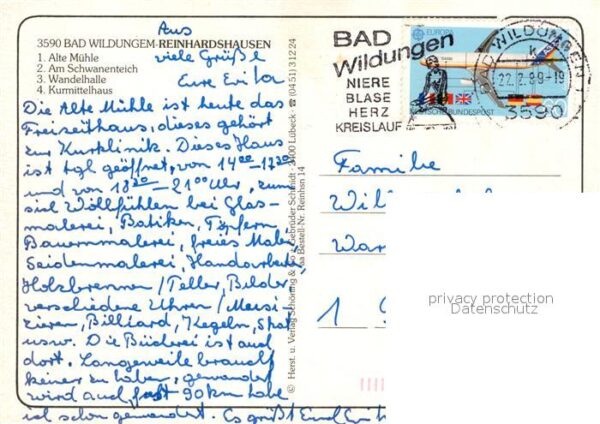 Aus
3590 BAD WILDUNGEN-REINHARDSHAUSEN
1. Alte Mühle
2. Am Schwanenteich
3. Wandelhalle
4. Kurmittelhaus
viele Grüße
Eure Erika
Die Alte Mühle ist heute das
Freizeithaus, dieses gehört
zur Kurklinik. Dieses Haus
ist tgl geöffnet, von 14⁰⁰-17³⁰
und von 18³⁰-21⁰⁰ Uhr, zum
sich Wollfühlen bei Glas-
malerei, Batiken, Töpfern,
Bauernmalerei, freies Malen,
Seidenmalerei, Handarbeiten,
Holzbrennen/Teller, Bilder
verschiedene Uhren/Musi-
zieren, Billiard, Kegeln, Skat
usw. Die Bücherei ist auch
dort. Langeweile brauch
keiner zu haben, gewandert
wird auch, fast 90 km habe
ich schon gewandert. Es grüßt Euch
© Herst. u. Verlag Schöning & Co + Gebrüder Schmidt · 2400 Lübeck · ☎ (0451) 31224
Bestell-Nr. Reinhsn 14
BAD
Wildungen
NIERE
BLASE
HERZ
KREISLAUF
EUROPA
DEUTSCHE BUNDESPOST
BAD WILDUNGEN 1
22.2.89-19
3590
Familie
Wil
War
1
privacy protection
Datenschutz